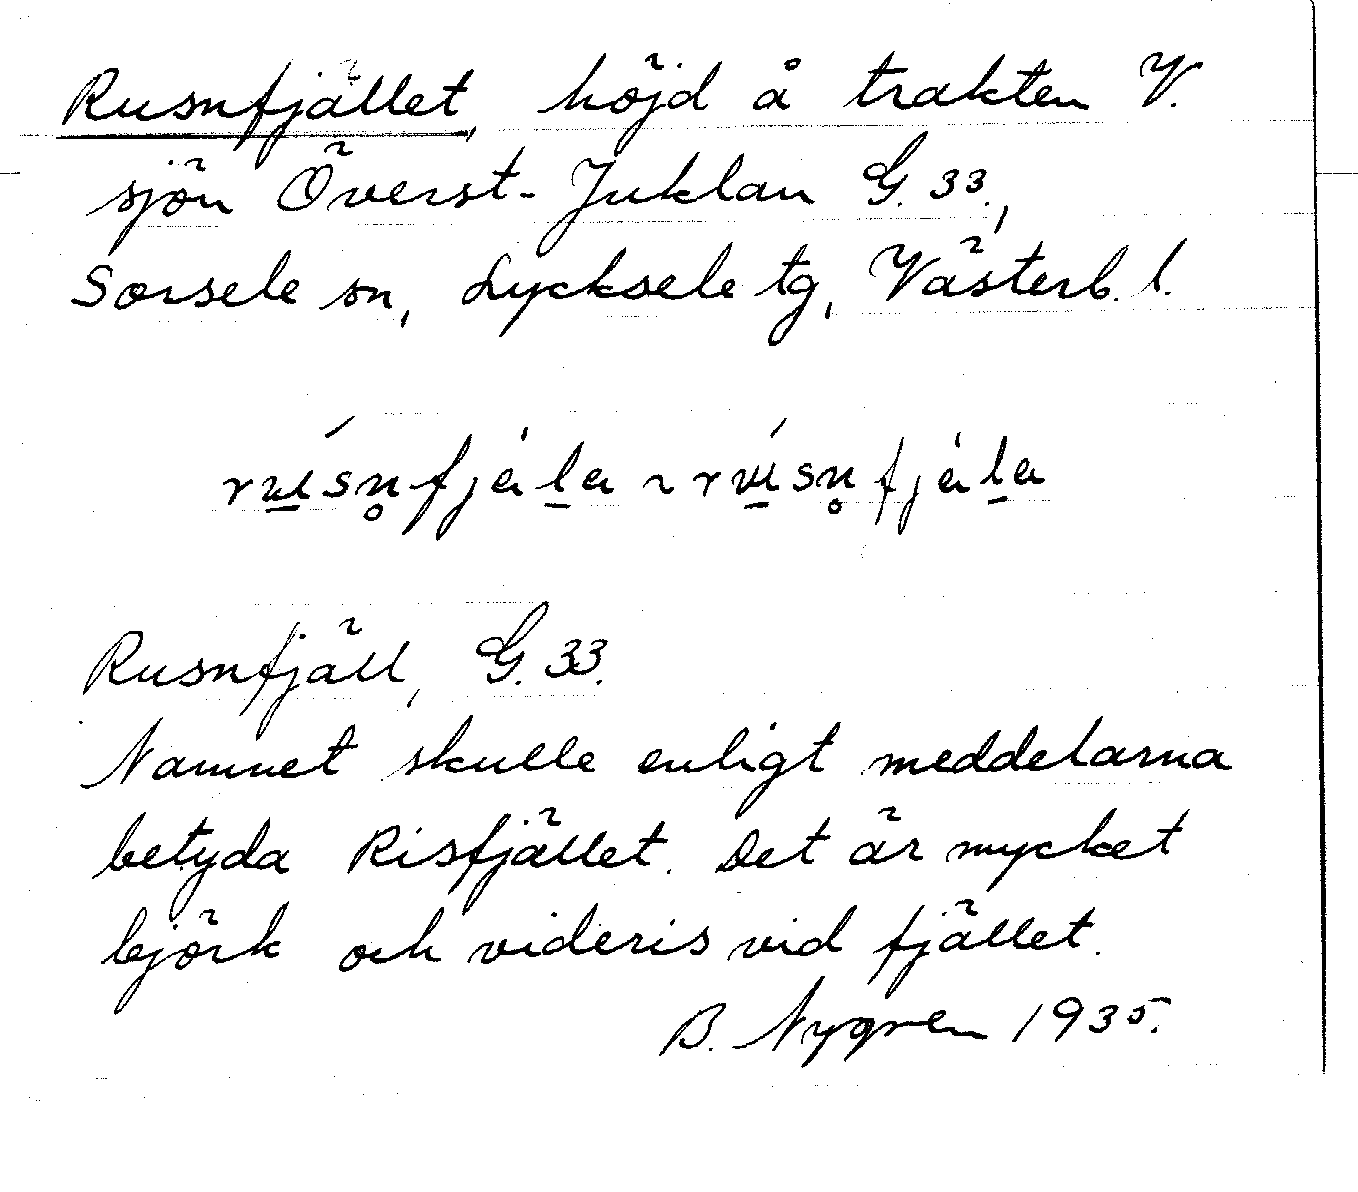 Rusnfjället, höjd å trakten V.
sjön Överst-Juklan G. 33.,
Sorsele sn, Lycksele tg, Västerb. l.
Rusnfjäll, G. 33.
Namnet skulle enligt meddelarna
betyda Risfjället. Det är mycket
björk och videris vid fjället.
B. Nygren 1935.